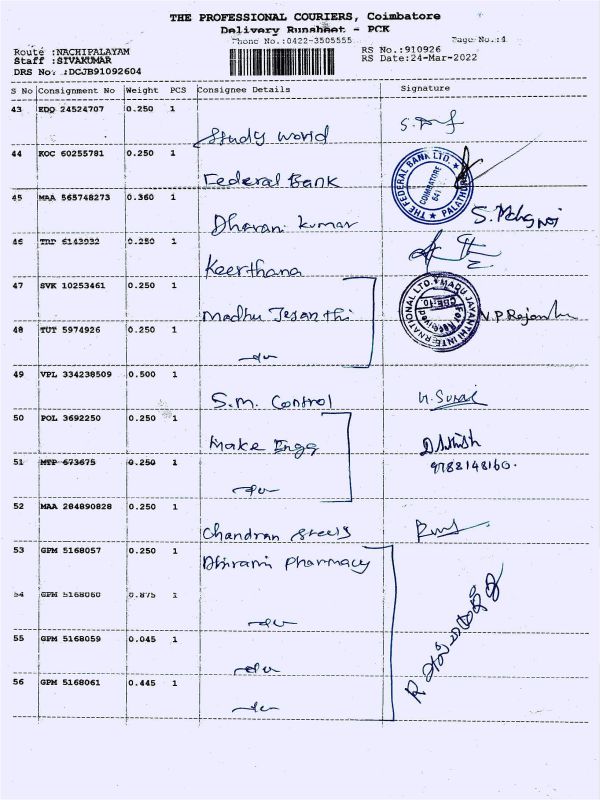 THE PROFESSIONAL COURIERS, Coimbatore
Delivery Runsheet - PCK
Phone No.:0422-3505555 Page No.:4
Route :NACHIPALAYAM RS No.:910926
Staff :SIVAKUMAR RS Date:24-Mar-2022
DRS No. :DCJB91092604
S No Consignment No Weight PCS Consignee Details Signature
43 EDQ 24524707 0.250 1
Study world
44 KOC 60255781 0.250 1
Federal Bank
THE FEDERAL BANK LTD.
COIMBATORE
641
45 MAA 565748273 0.360 1
Dharani kumar
46 TRP 6143932 0.250 1
Keerthana
47 SVK 10253461 0.250 1
Madhu Jesanthi
MADU JAYANTHI INTERNATIONAL LTD.
CBE-10.
48 TUT 5974926 0.250 1
-do-
49 VPL 334238509 0.500 1
S.M. Control
50 POL 3692250 0.250 1
Make Engg
9788148160.
51 MTP 673675 0.250 1
-do-
52 MAA 284890828 0.250 1
Chandran Steels
53 GPM 5168057 0.250 1
Dhirani Pharmacy
54 GPM 5168060 0.875 1
-do-
55 GPM 5168059 0.045 1
-do-
56 GPM 5168061 0.445 1
-do-